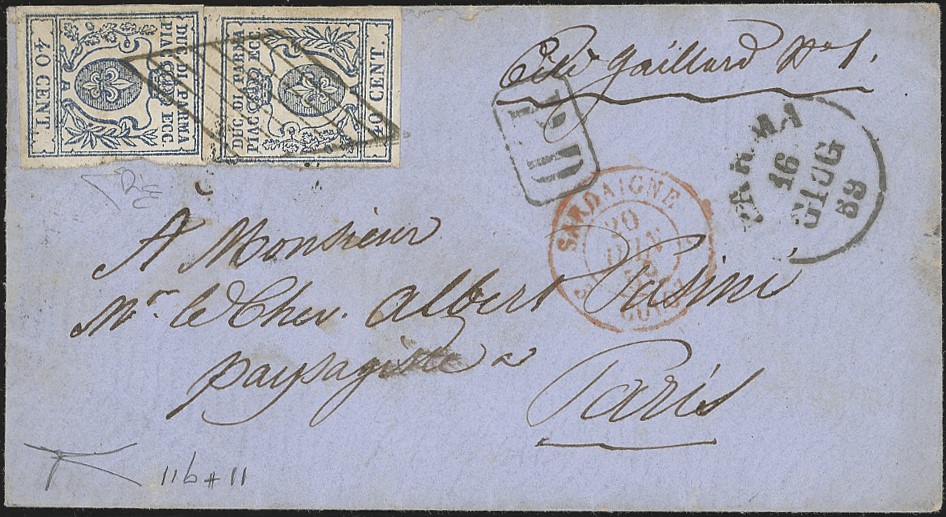 DUC. DI PARMA
PIAC. ECC.
40 CENT.
DUC. DI PARMA
PIAC. ECC.
40 CENT.
Gaillard No 1.
PD
PARMA
16
GIUG
59
SARDAIGNE
20
JUIN
A Monsieur
Mr. le Chev. Albert Pasini
paysagiste
Paris
11b+11